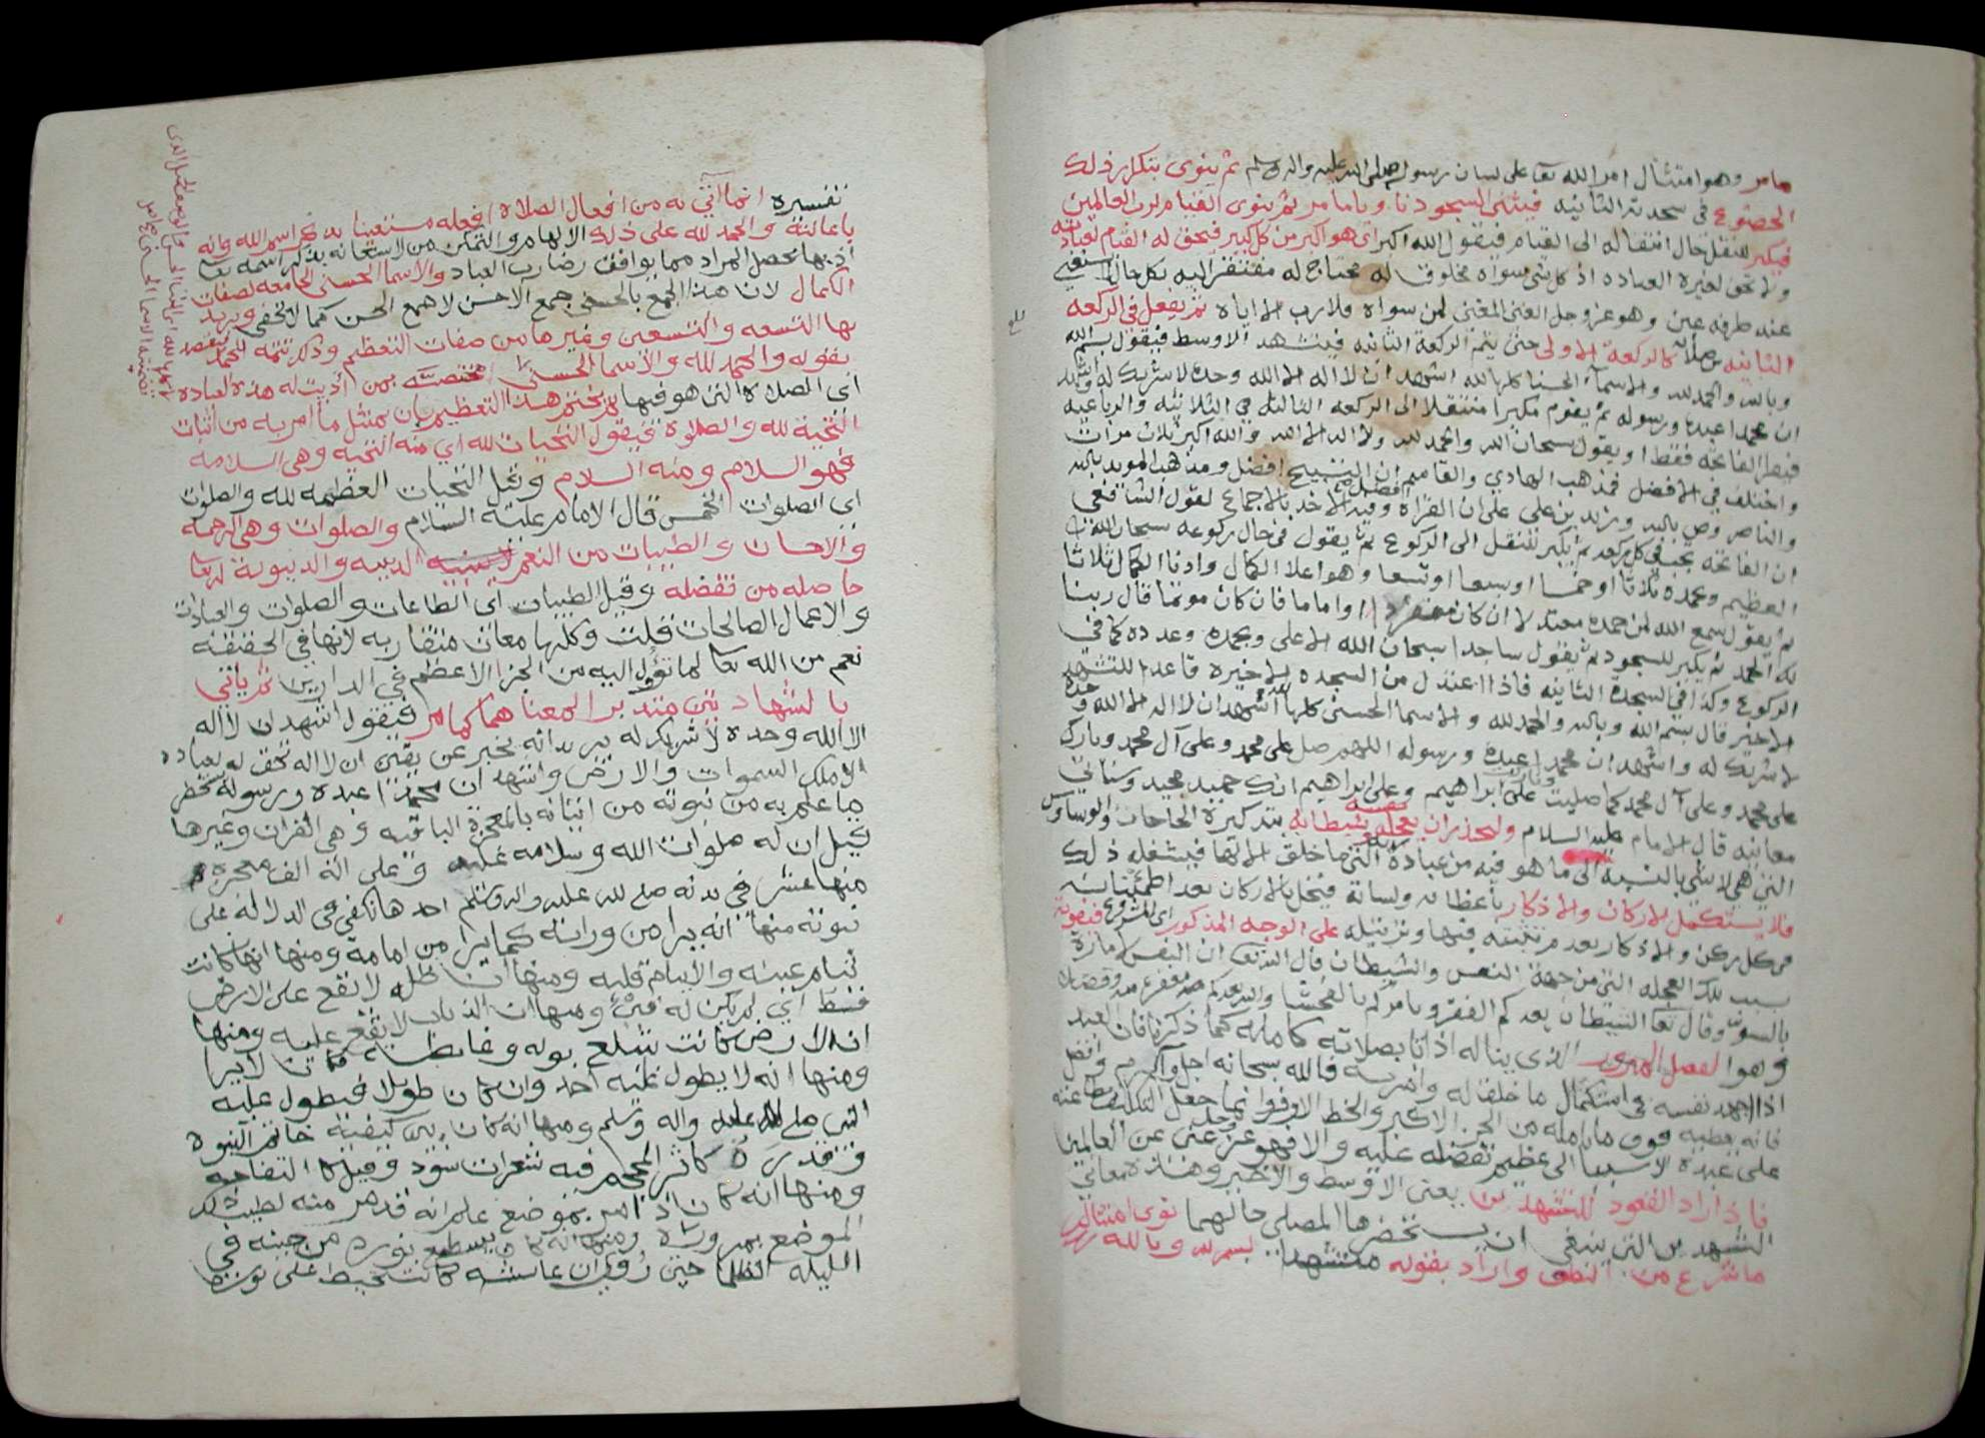 مامر وهو امتثال امر الله تعا على لسان رسوله صلى الله عليه واله وسلم ثم ينوى بتكرار ذلك
الخضوع في سجدته الثانيه فيثنى السجود نا ويا مامر ثم ينوى القيام لرب العالمين
فيكبر للنقل حال انتقاله الى القيام فيقول الله اكبر اى هو اكبر من كل كبير فيحق له القيام لعبادته
ولا تحق لغيره العباده اذ كل شى سواه مخلوق له محتاج له مفتقر اليه بكل حال لا يستغنى
عنه طرفه عين وهو عز وجل الغنى المغنى لمن سواه فلا رب الا اياه ثم يفعل في الركعه
الثانيه مثلا كالركعه الاولى حتى يتم الركعه الثانيه فيتشهد الاوسط فيقول بسم الله
وبالله والحمد لله والاسما الحسنا كلها لله اشهد ان لا اله الا الله وحده لا شريك له واشهد
ان محمدا عبده ورسوله ثم يقوم مكبرا منتقلا الى الركعه الثالثه في الثلاثيه والرباعيه
فيقرا الفاتحه فقط او يقول سبحان الله والحمد لله ولا اله الا الله والله اكبر ثلاث مرات
واختلف في الافضل فمذهب الهادي والقاسم ان التسبيح افضل ومذهب المويد بالله
والناصر وص بالله وزيد بن على على ان القراة افضل وفيه الاخذ بالاجماع لقول الشافعى
ان الفاتحه تجب في كل ركعه ثم يكبر للنقل الى الركوع ثم يقول في حال ركوعه سبحان الله
العظيم وبحمده ثلاثا او خمسا او سبعا او تسعا وهو اعلا الكمال وادنا الكمال ثلاثا
ثم يقول سمع الله لمن حمده معتدلا ان كان منفردا او اماما فان كان موتما قال ربنا
لك الحمد ثم يكبر للسجود ثم يقول ساجدا سبحان الله الاعلى وبحمده وعدده كما في
الركوع وكذا في السجدة الثانيه فاذا اعتدل من السجده الاخيره قاعدا للتشهد
الاخير قال بسم الله وبالله والحمد لله والاسما الحسنى كلها لله اشهد ان لا اله الا الله وحده
لا شريك له واشهد ان محمدا عبده ورسوله اللهم صل على محمد وعلى آل محمد وبارك
على محمد وعلى آل محمد كما صليت وباركت على ابراهيم وعلى ابراهيم انك حميد مجيد وسياتي
معانيه قال الامام عليه السلام وليحذر ان يعجله شيطانه بتذكيره الحاجات والوساوس
التي هى لا شى بالنسبة الى ما هو فيه من عبادة التي ما خلق الا لها فيشغله ذلك
فلا يستكمل الاركان والاذكار باعظائه ولسانه فيخل بالاركان بعد اطمئنانه
في كل ركن والاذكار بعد مرتبته فيها وترتيله على الوجه المذكور اى المشروع فيفوته
بسبب تلك العجله التي من جهة النفس والشيطان قال الله تعا ان النفس لامارة
بالسوء وقال تعا الشيطان يعدكم الفقر ويامركم بالفحشا والله يعدكم مغفرة منه وفضلا
وهو الفصل الذى يناله اذا اتا بصلاته كامله كما ذكرنا فان العبد
اذا اجهد نفسه في استكمال ما خلق له وامر به فالله سبحانه اجل واكرم وافضل
فانه يعطيه فوق ما يامله من الجزا الاكبر والخط الاوفر وانما جعل التكليف
على عبده الا سببا الى عظيم تفضله عليه والا فهو عز وجل غنى عن العالمين
فاذا اراد القعود للتشهدين يعنى الاوسط والاخير وهذه معاني
التشهدين التى ينبغى ان يستحضرها المصلى حالهما نوى امتثال
ما شرع من النطق واراد بقوله متشهدا بسم لله وبالله
تفسيره انما اتى به من افعال الصلاة افعله مستعينا به فى اسم الله وانه
باعانته والحمد لله على ذلك الالهام والتمكن من الاستعانه بذكر اسمه تعا
اذ بها يحصل المراد مما يوافق رضا رب العباد والاسما الحسنى الجامعه لصفات
الكمال لان هذا الجمع بالحسنى جمع الاحسن لا جمع الحسن كما لا يخفى ويريد
بها التسعه والتسعين وغيرها من صفات التعظيم وذكر تتمه الحمد
بقوله والحمد لله والاسما الحسنى مختصه بمن اديت له هذه العباده
اى الصلاة التى هو فيها ثم يختم هذا التعظيم بان يمتثل ما امر به من اثبات
التحية لله والصلوة فيقول التحيات لله اي منه التحيه وهى السلامه
فهو السلام ومنه السلام وقيل التحيات العظيمه لله والصلوات
اى الصلوات الخمس قال الامام عليه السلام والصلوات وهى الرحمه
والاحسان والطيبات من النعم الدينيه والدنيوية
حاصله من تفضله وقيل الطيبات اى الطاعات والصلوات والعبادات
والاعمال الصالحات قلت وكلها معان متقاربه لانها في الحقيقه
نعم من الله تعا لما تؤل اليه من الجزا الاعظم في الدارين ثم ياتى
بالشهادتين متدبرا لمعناهما كما مر فيقول اشهد ان لا اله
الا الله وحده لا شريك له يريد انه يخبر عن يقين ان لا اله تحق له العباده
الا ملك السموات والارض واشهد ان محمدا عبده ورسوله
بما علم به من نبوته من اتيانه بالمعجزة الباقيه وهى القران وغيرها
قيل ان له صلوات الله وسلامه عليه وعلى اله الف معجزه
منها عشر في بدنه صلى الله عليه واله وسلم احدها تكفى في الدلاله على
نبوته منها انه يرا من ورائه كما يرا من امامه ومنها انها كانت
تنام عينه ولا ينام قلبه ومنها ان ظله لا تقع على الارض
قط اي لم يكن له فى ومنها ان الذباب لا يقع عليه ومنها
ان الارض كانت تبتلع بوله وغايطه لا يرا
ومنها انه لا يطول عليه احد وان كان طويلا فيطول عليه
النبى صلى الله عليه واله وسلم ومنها انه كان بين كتفيه خاتم النبوه
كاثر المحجم فيه شعرات سود وقيل كالتفاحه
ومنها انه كان اذا مر بموضع علم انه قد مر منه لطيب
الموضع بمروره ومنها انه كان يسطع نوره من جبينه في
الليله الظلما حتى روى ان عائشه كانت تخيط على نوره